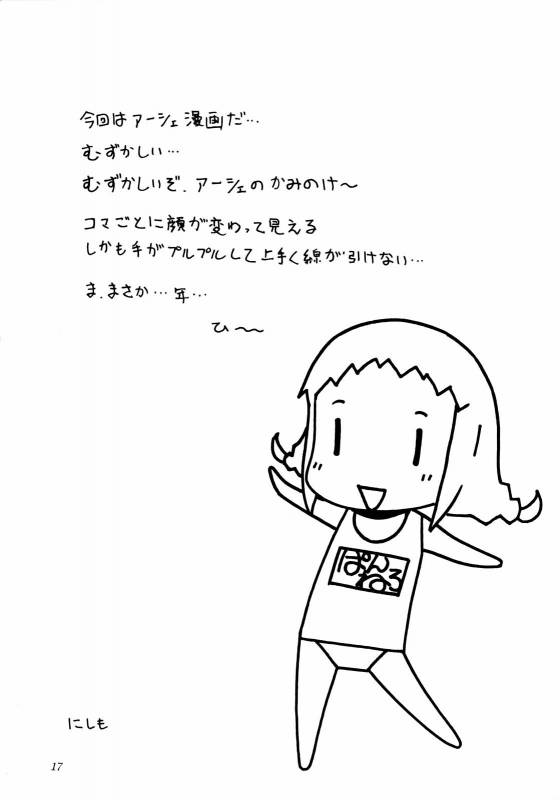 今回はアーシェ漫画だ…
むずかしい…
むずかしいぞ、アーシェのかみのけ～
コマごとに顔が変わって見える
しかも手がプルプルして上手く線が引けない…
ま、まさか…年…
ひ～～
ぽん
ねろ
にしも
17